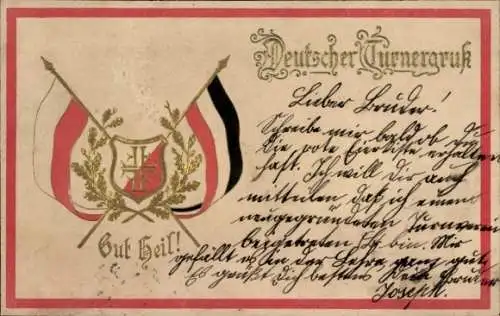 Deutscher Turnergruß
Lieber Bruder!
Schreibe mir bald ob du
die rote Eierkiste erhalten
hast. Ich will dir auch
mitteilen, daß ich einem
neugegründeten Turnverein
beigetreten bin. Mir
gefällt es in der Lehre ganz gut.
Es grüßt dich bestens Dein Bruder
Joseph.
Gut Heil!